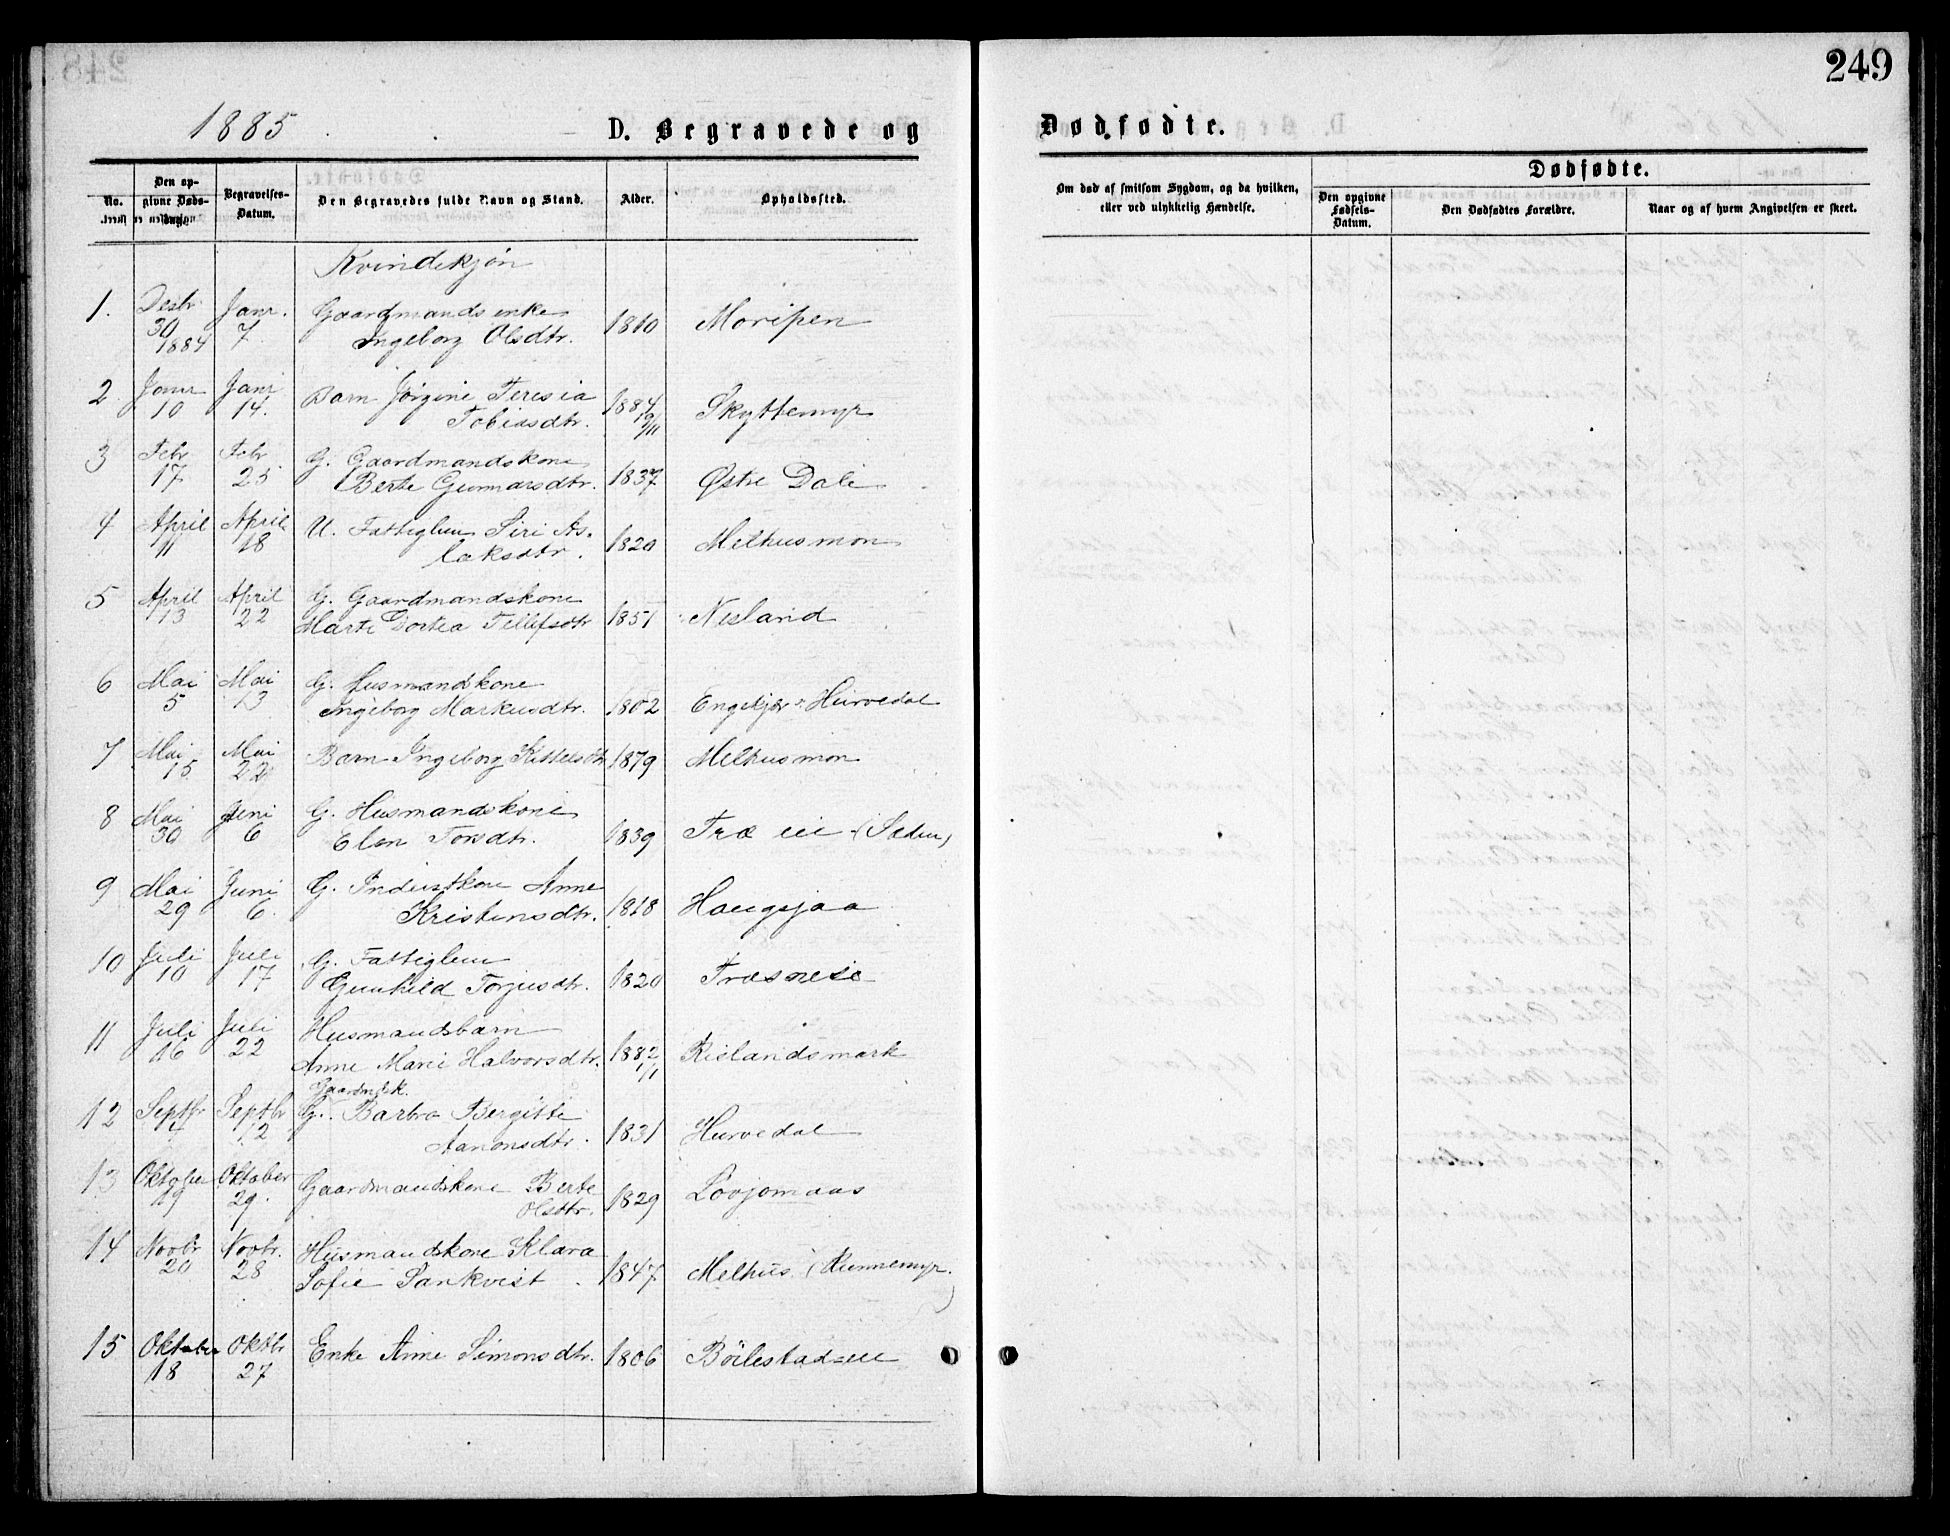 249
1885
D. Begravede og
Dødfødte.
No.
Den opgivne Døds-
Begravelses-Datum.
Den Begravedes fulde Navn og Stand.
Alder.
Opholdssted.
Om død af smitsom Sygdom, og da hvilken, eller ved ulykkelig Hændelse.
Dødfødte.
Den opgivne Fødsels-Datum.
Den Dødfødtes Forældre.
Naar og af hvem Angivelsen er skeet.
Kvindekjøn
1. Desbr. 30 1884 Janr. 7. Gaardmandsenke Ingeborg Olsdtr. 1810 Moripen
2. Janr 10 Janr 14. Barn Jørgine Teresia Tobiasdtr. 1884 19/11 Skyttemyr
3 Febr 17 Febr 25 G. Gaardmandskone Berte Gunnarsdtr. 1837 Østre Dale
4 April 11 April 18 U. Fattiglem Siri Aslaksdtr. 1820 Melhusmon
5 April 13 April 22 G. Gaardmandskone Marte Dortea Tellefsdtr 1851 Nesland
6 Mai 5 Mai 13 G. Husmandskone Ingeborg Markusdtr. 1802 Engekjær Hurvedal
7 Mai 15 Mai 22 Barn Ingeborg Kittelsdtr 1879 Melhusmon
8 Mai 30 Juni 6 G. Husmandskone Elen Torsdtr. 1839 Træ eie (Sæden)
9 Mai 29 Juni 6. G. Inderstkone Anne Kristensdtr. 1818 Haugsjaa
10 Juli 10 Juli 17 G. Fattiglem Gunhild Torjusdtr. 1820 Træsneie
11 Juli 16 Juli 22 Husmandsbarn Anne Marie Halvorsdtr. 1882 1/1 Rislandsmark
12 Septbr 4 Septbr 12 Gaardmdk. G. Barbro Bergitte Aanonsdtr. 1831 Hurvedal
13 Oktober 19 Oktober 29. Gaardmandskone Berte Olsdtr. 1829 Lovjomaas
14 Novbr 20 Novbr. 28 Husmandskone Klara Sofie Sankvist 1847 Melhus (Runnemyr.)
15 Oktober 18 Oktbr 27 Enke Anne Simonsdtr. 1806 Böilestad eie